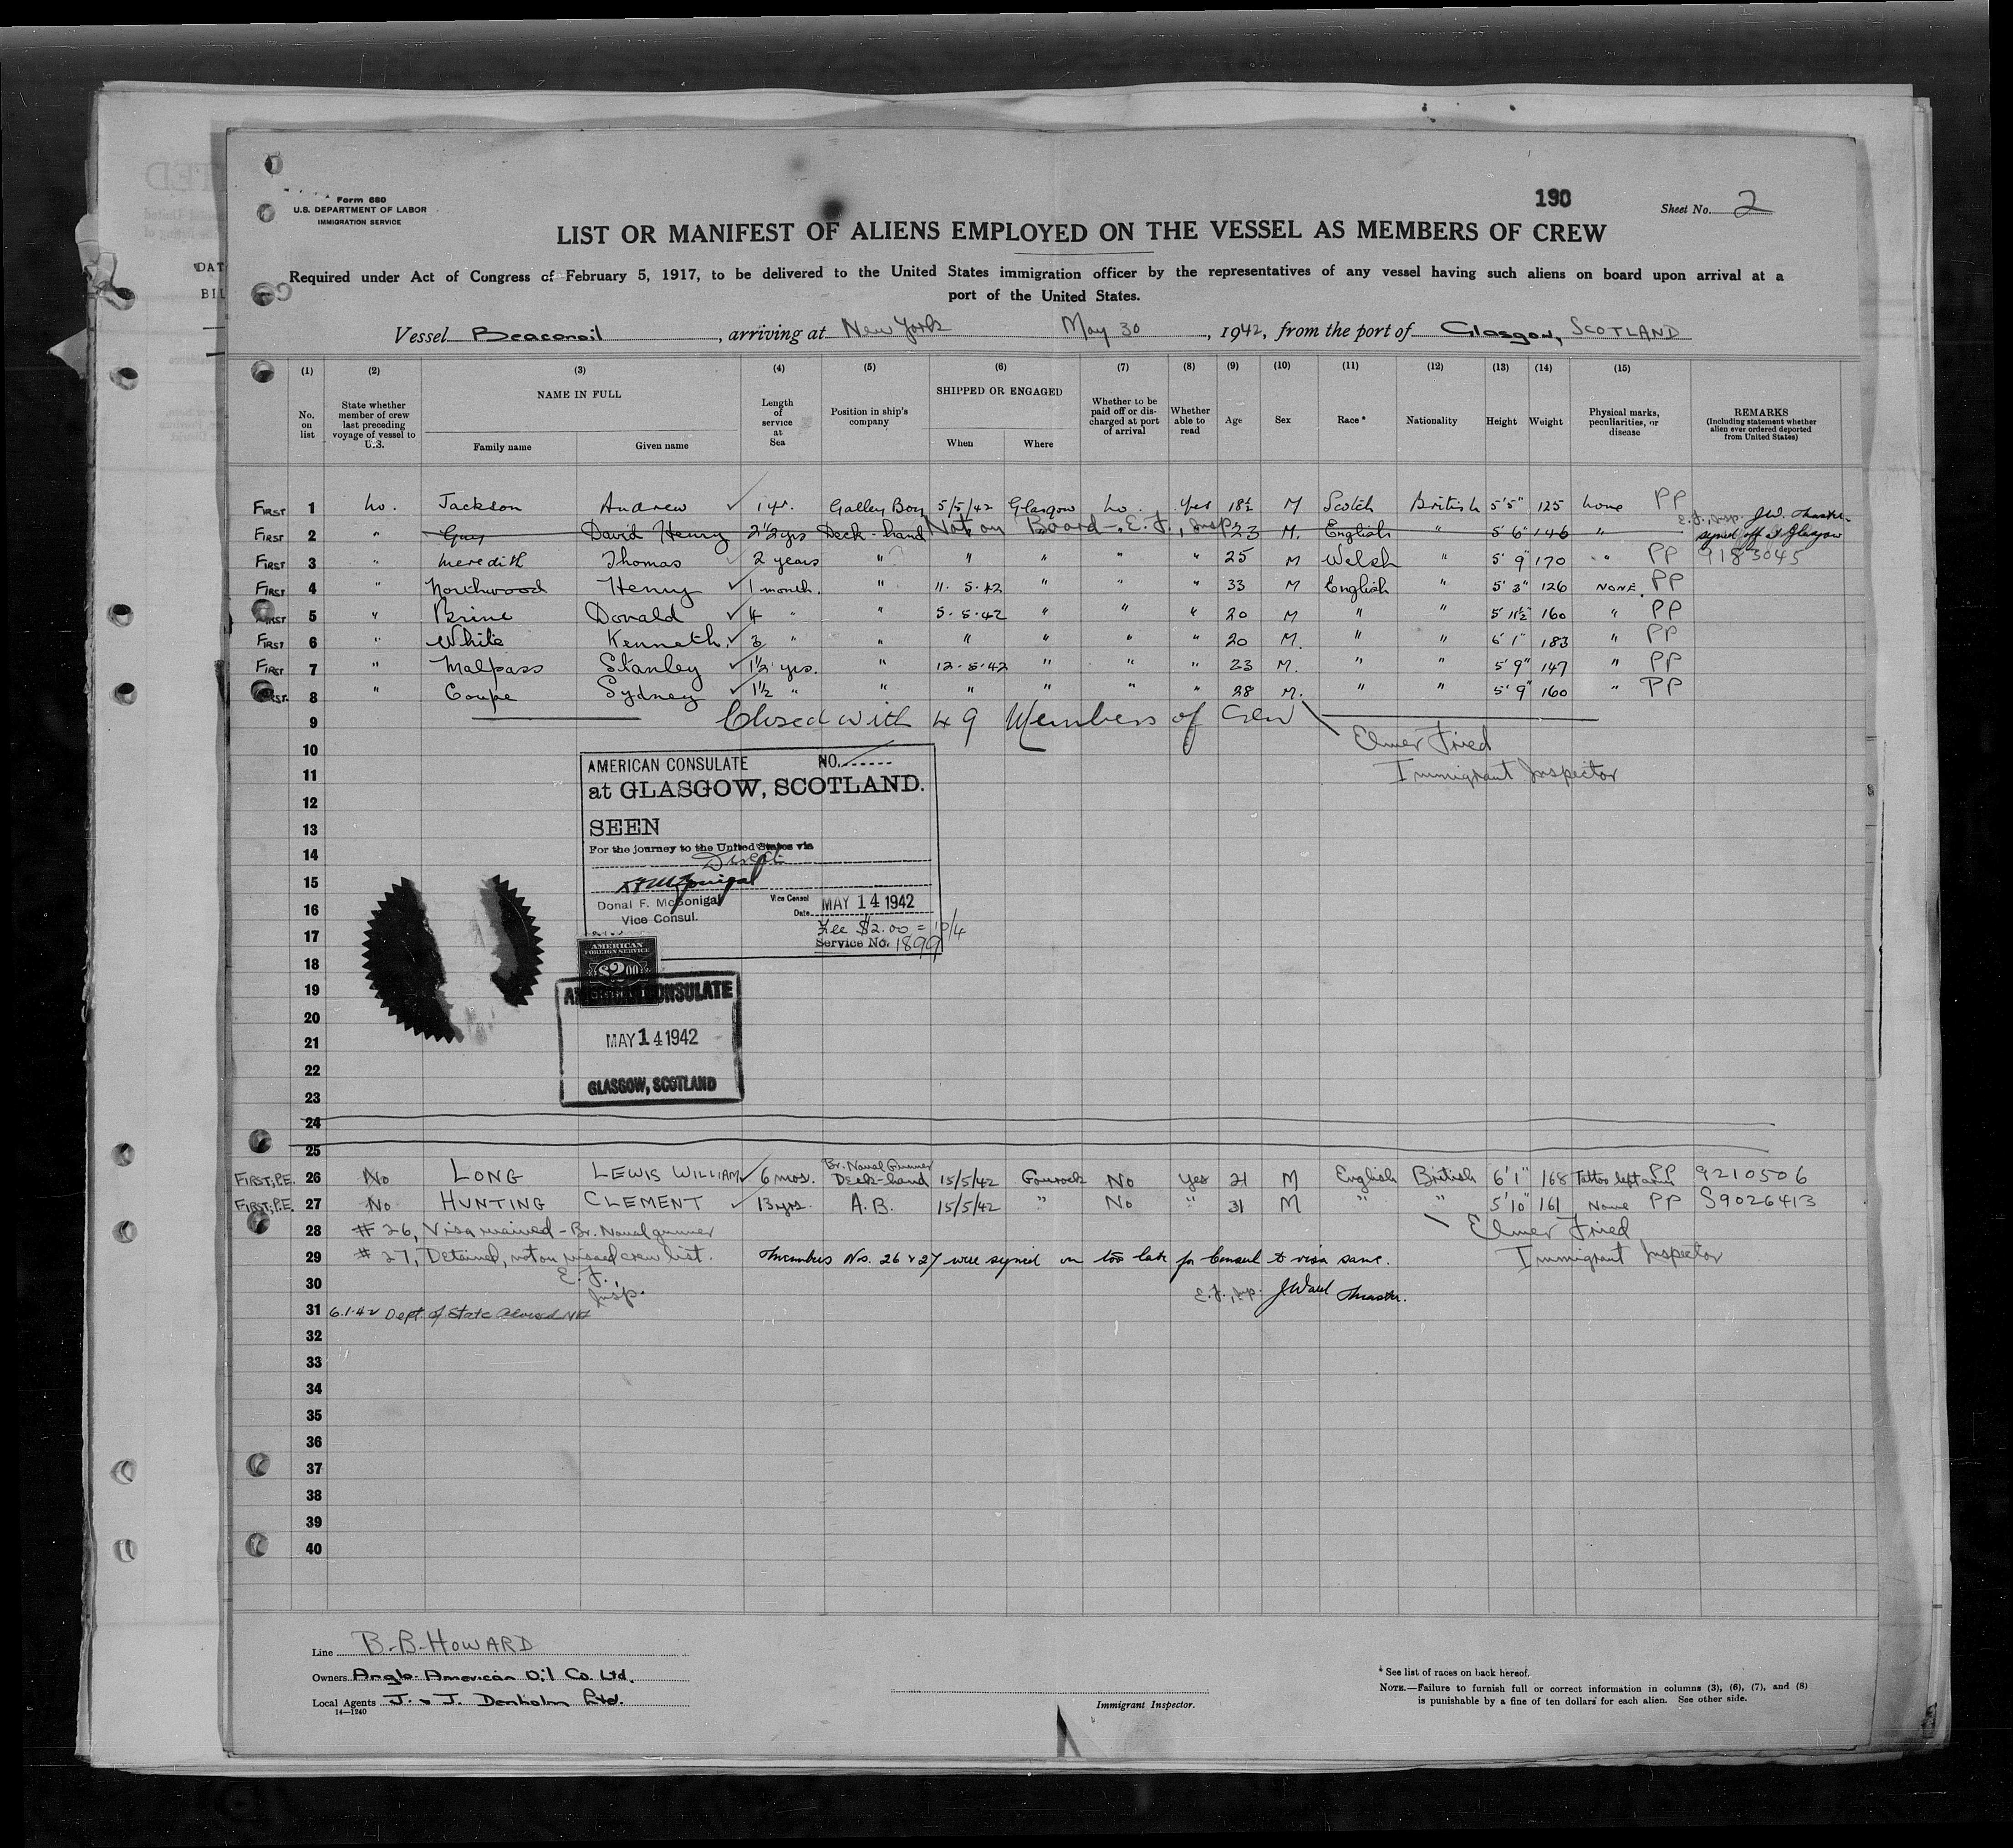 190
Form 680
U.S. DEPARTMENT OF LABOR
IMMIGRATION SERVICE
Sheet No. 2
LIST OR MANIFEST OF ALIENS EMPLOYED ON THE VESSEL AS MEMBERS OF CREW
Required under Act of Congress of February 5, 1917, to be delivered to the United States immigration officer by the representatives of any vessel having such aliens on board upon arrival at a
port of the United States.
Vessel Beaconoil, arriving at New York May 30, 1942, from the port of Glasgow, SCOTLAND
(1) (2) (3) (4) (5) (6) (7) (8) (9) (10) (11) (12) (13) (14) (15)
No. on list
State whether member of crew last preceding voyage of vessel to U.S.
NAME IN FULL
Family name
Given name
Length of service at Sea
Position in ship's company
SHIPPED OR ENGAGED
When
Where
Whether to be paid off or discharged at port of arrival
Whether able to read
Age
Sex
Race*
Nationality
Height
Weight
Physical marks, peculiarities, or disease
REMARKS
(Including statement whether alien ever ordered deported from United States)
FIRST 1 No. Jackson Andrew ✓ 1 yr. Galley Boy 5/5/42 Glasgow No. Yes 18½ M Scotch British 5'5" 125 None PP
E.F., Insp. J.W. Master.
FIRST 2 " Guy David Henry 2½ yrs Deck-hand Not on Board - E.F., Insp. 23 M. English " 5'6" 146 " signed off at Glasgow
FIRST 3 " Meredith Thomas ✓ 2 years " " " " " 25 M Welsh " 5'9" 170 " PP 9183045
FIRST 4 " Northwood Henry ✓ 1 month. " 11.5.42 " " " 33 M English " 5'3" 126 NONE. PP
FIRST 5 " Brine Donald ✓ 4 " " 5.5.42 " " " 20 M " " 5'11½ 160 " PP
FIRST 6 " White Kenneth. ✓ 3 " " " " " " 20 M. " " 6'1" 183 " PP
FIRST 7 " Malpass Stanley ✓ 1½ yrs. " 12.5.42 " " " 23 M. " " 5'9" 147 " PP
FIRST 8 " Coupe Sydney ✓ 1½ " " " " " " 28 M. " " 5'9" 160 " PP
9 Closed with 49 Members of Crew
10 Elmer Fried
11 Immigrant Inspector
12
13
14
15
16
17
18
19
20
21
22
23
24
25
AMERICAN CONSULATE NO.
at GLASGOW, SCOTLAND.
SEEN
For the journey to the United States via
Direct
Donal F. McGonigal
Vice Consul.
Vice Consul
Date MAY 14 1942
Fee $2.00 = 10/4
Service No. 1899
AMERICAN
FOREIGN SERVICE
$2.00
AMERICAN CONSULATE
MAY 14 1942
GLASGOW, SCOTLAND
FIRST; P.E. 26 No LONG LEWIS WILLIAM ✓ 6 mos. Br. Naval Gunner Deck-hand 15/5/42 Gourock No Yes 21 M English British 6'1" 168 Tattoo left arm PP 9210506
FIRST; P.E. 27 No HUNTING CLEMENT ✓ 13 yrs. A.B. 15/5/42 " No " 31 M " " 5'10" 161 None PP S9026413
28 #26, Visa waived - Br. Naval gunner Elmer Fried
29 #27, Detained, not on visaed crew list. Members Nos. 26 & 27 were signed on too late for Consul to visa same. Immigrant Inspector
30 E.F., Insp. E.F., Insp. J Ward Master.
31 6.1.42 Dept. of State
32
33
34
35
36
37
38
39
40
Line B.B. HOWARD
Owners Anglo-American Oil Co. Ltd.
Local Agents J. & J. Denholm Ltd.
14—1240
Immigrant Inspector.
* See list of races on back hereof.
NOTE.—Failure to furnish full or correct information in columns (3), (6), (7), and (8)
is punishable by a fine of ten dollars for each alien. See other side.